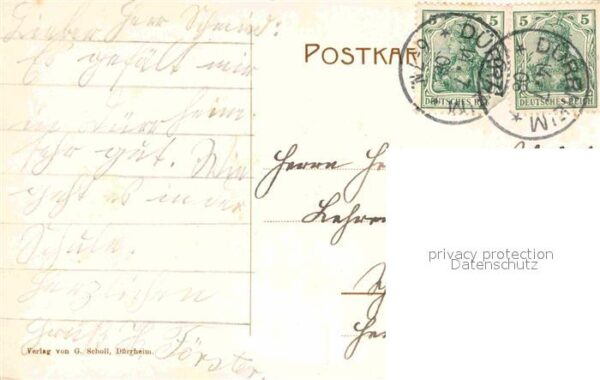 Lieber Herr Schmid:
Es gefällt mir
in Dürrheim.
sehr gut. Wie
geht es in der
Schule.
Herzlichen
Gruß
Förster.
Verlag von G. Scholl, Dürgheim.
POSTKAR
5 5
DEUTSCHES REICH
DEUTSCHES REICH
DÜRRHEIM
Herrn
Lehrer
privacy protection
Datenschutz